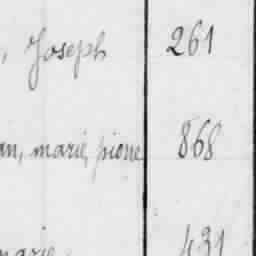 , Joseph 261
an, marie, pierre 868
marie 431